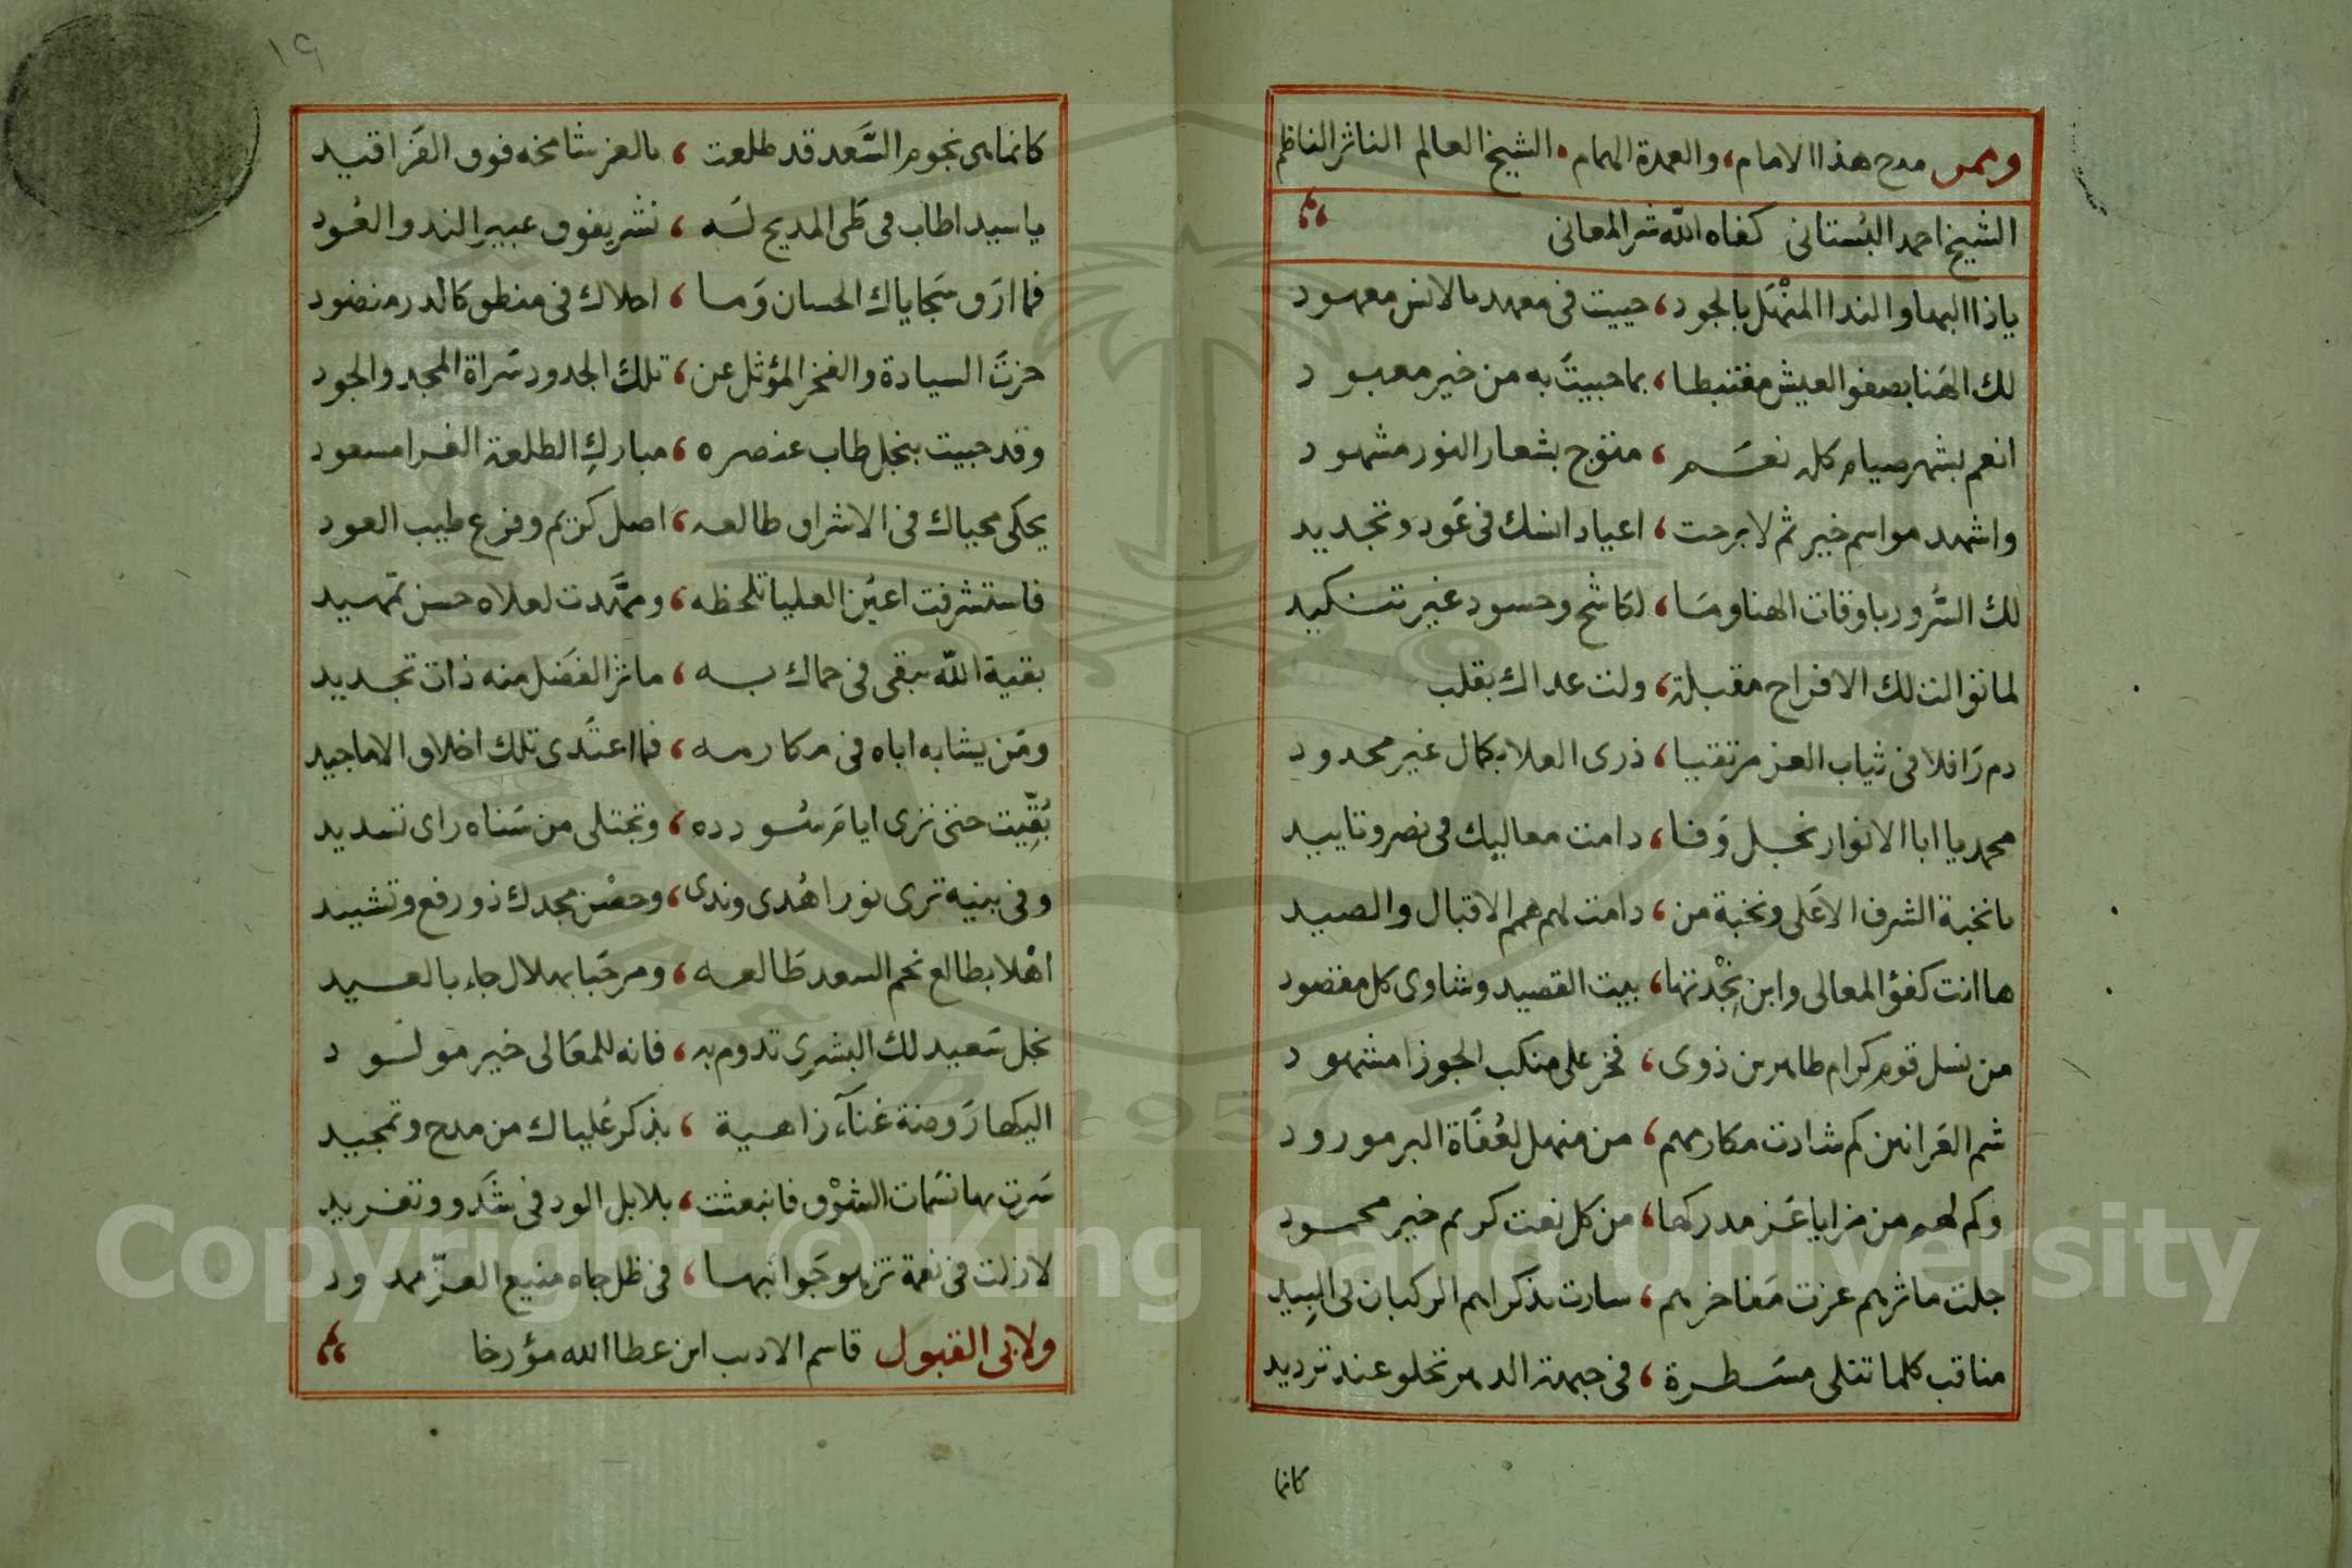 وممن مدح هذا الامام، والعمدة الهمام، الشيخ العالم الناثر الناظم
الشيخ احمد البستانى كفاه الله شر المعانى
ياذا البها والندا المنهل بالجود، حييت فى معهد بالانس معهود
لك الهنا بصفو العيش مغتبطا، بما حبيت به من خير معبود
انعم بشهر صيام كله نعم، متوج بشعار النور مشهود
واشهد مواسم خير ثم لا برحت، اعياد انسك فى عود وتجديد
لك السرور باوقات الهنا وما، لكاشح وحسود غير تنكيد
لما توالت لك الافراح مقبلة، ولت عداك بقلب
دم رافلا فى ثياب العز مرتقيا، ذرى العلا بكمال غير محدود
محمد يا ابا الانوار نجل وفا، دامت معاليك فى نصر وتاييد
يا نخبة الشرف الاعلى ونخبة من، دامت لهم همم الاقبال والصيد
ها انت كفؤ المعالى وابن بجدتها، بيت القصيد وشاوى كل مقصود
من نسل قوم كرام طاهرين ذوى، فخر على منكب الجوزا مشهود
شم العرانين كم شادت مكارمهم، من منهل لعفاة البر مورود
وكم لهم من مزايا عز مدركها، من كل نعت كريم خير محمود
جلت ماثرهم عزت مفاخرهم، سارت بذكراهم الركبان فى البيد
مناقب كلما تتلى مسطرة، فى جبهة الدهر تحلو عند ترديد
كانما
١٩
كانما هى نجوم السعد قد طلعت، بالعز شامخه فوق الفراقيد
يا سيدا طاب فى طى المديح له، نشر يفوق عبير الند والعود
فما ارق سجاياك الحسان وما، احلاك فى منطق كالدر منضود
حزت السيادة والفخر المؤثل عن، تلك الجدود سراة المجد والجود
وقد حبيت بنجل طاب عنصره، مبارك الطلعة الغرا مسعود
يحكى محياك فى الاشراق طالعه، اصل كريم وفرع طيب العود
فاستشرفت اعين العليا تلحظه، ومهدت لعلاه حسن تمهيد
بقية الله تبقى فى حماك به، ماثر الفضل منه ذات تجديد
ومن يشابه اباه فى مكارمه، فما اعتدى تلك اخلاق الاماجيد
بقيت حتى ترى ايام سودده، وتجتلى من سناه راى تسديد
وفى بنيه ترى نور اهدى وندى، وحصن مجدك ذو رفع وتشييد
اهلا بطالع نجم السعد طالعه، ومرحبا بهلال جاء بالعيد
نجل سعيد لك البشرى تدوم به، فانه للمعالى خير مولود
اليكها روضة غناء زاهية، بذكر علياك من مدح وتمجيد
سرت بها نسمات الشوق فانبعثت، بلابل الود فى شدو وتغريد
لازلت فى نعمة تزهو جوانبها، فى ظل جاه منيع العز ممدود
ولابى القبول قاسم الاديب ابن عطا الله مؤرخا
Copyright © King Saud University
1957